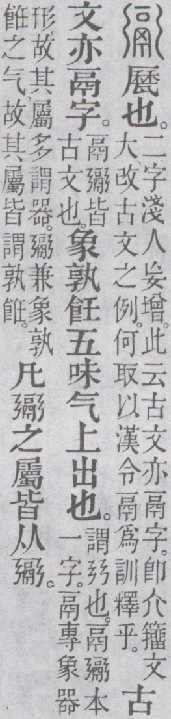 䰜㽁也。二字淺人妄增。此云古文亦鬲字。卽介籒文大改古文之例。何取以漢令鬲爲訓釋乎。古
文亦鬲字。鬲䰜皆古文也。象孰飪五味气上出也。謂弜也。鬲䰜本一字。鬲專象器
形。故其屬多謂器。䰜兼象孰飪之气。故其屬皆謂孰飪。凡䰜之屬皆从䰜。